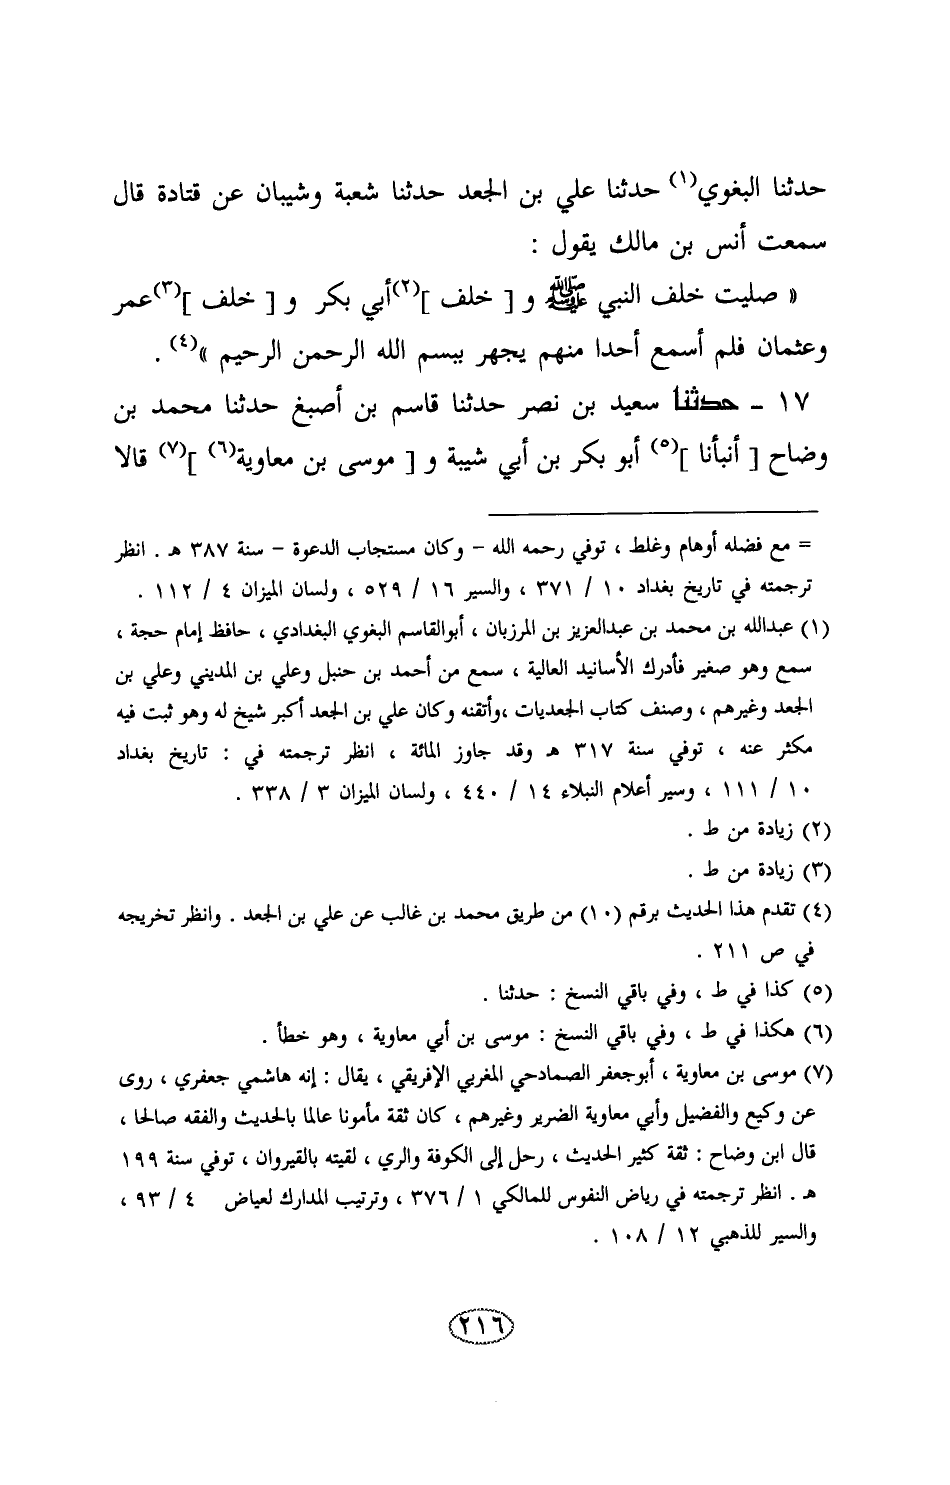 حدثنا البغوي(١) حدثنا علي بن الجعد حدثنا شعبة وشيبان عن قتادة قال
سمعت أنس بن مالك يقول :
« صليت خلف النبي ﷺ و [ خلف ](٢)أبي بكر و [ خلف ](٣)عمر
وعثمان فلم أسمع أحدا منهم يجهر ببسم الله الرحمن الرحيم »(٤) .
١٧ ـ حدثنا سعيد بن نصر حدثنا قاسم بن أصبغ حدثنا محمد بن
وضاح [ أنبأنا ](٥) أبو بكر بن أبي شيبة و [ موسى بن معاوية(٦) ](٧) قالا
= مع فضله أوهام وغلط ، توفي رحمه الله – وكان مستجاب الدعوة – سنة ٣٨٧ هـ . انظر
ترجمته في تاريخ بغداد ١٠ / ٣٧١ ، والسير ١٦ / ٥٢٩ ، ولسان الميزان ٤ / ١١٢ .
(١) عبدالله بن محمد بن عبدالعزيز بن المرزبان ، أبوالقاسم البغوي البغدادي ، حافظ إمام حجة ،
سمع وهو صغير فأدرك الأسانيد العالية ، سمع من أحمد بن حنبل وعلي بن المديني وعلي بن
الجعد وغيرهم ، وصنف كتاب الجعديات ،وأتقنه وكان علي بن الجعد أكبر شيخ له وهو ثبت فيه
مكثر عنه ، توفي سنة ٣١٧ هـ وقد جاوز المائة ، انظر ترجمته في : تاريخ بغداد
١٠ / ١١١ ، وسير أعلام النبلاء ١٤ / ٤٤٠ ، ولسان الميزان ٣ / ٣٣٨ .
(٢) زيادة من ط .
(٣) زيادة من ط .
(٤) تقدم هذا الحديث برقم (١٠) من طريق محمد بن غالب عن علي بن الجعد . وانظر تخريجه
في ص ٢١١ .
(٥) كذا في ط ، وفي باقي النسخ : حدثنا .
(٦) هكذا في ط ، وفي باقي النسخ : موسى بن أبي معاوية ، وهو خطأ .
(٧) موسى بن معاوية ، أبوجعفر الصمادحي المغربي الإفريقي ، يقال : إنه هاشمي جعفري ، روى
عن وكيع والفضيل وأبي معاوية الضرير وغيرهم ، كان ثقة مأمونا عالما بالحديث والفقه صالحا ،
قال ابن وضاح : ثقة كثير الحديث ، رحل إلى الكوفة والري ، لقيته بالقيروان ، توفي سنة ١٩٩
هـ . انظر ترجمته في رياض النفوس للمالكي ١ / ٣٧٦ ، وترتيب المدارك لعياض ٤ / ٩٣ ،
والسير للذهبي ١٢ / ١٠٨ .
٢١٦